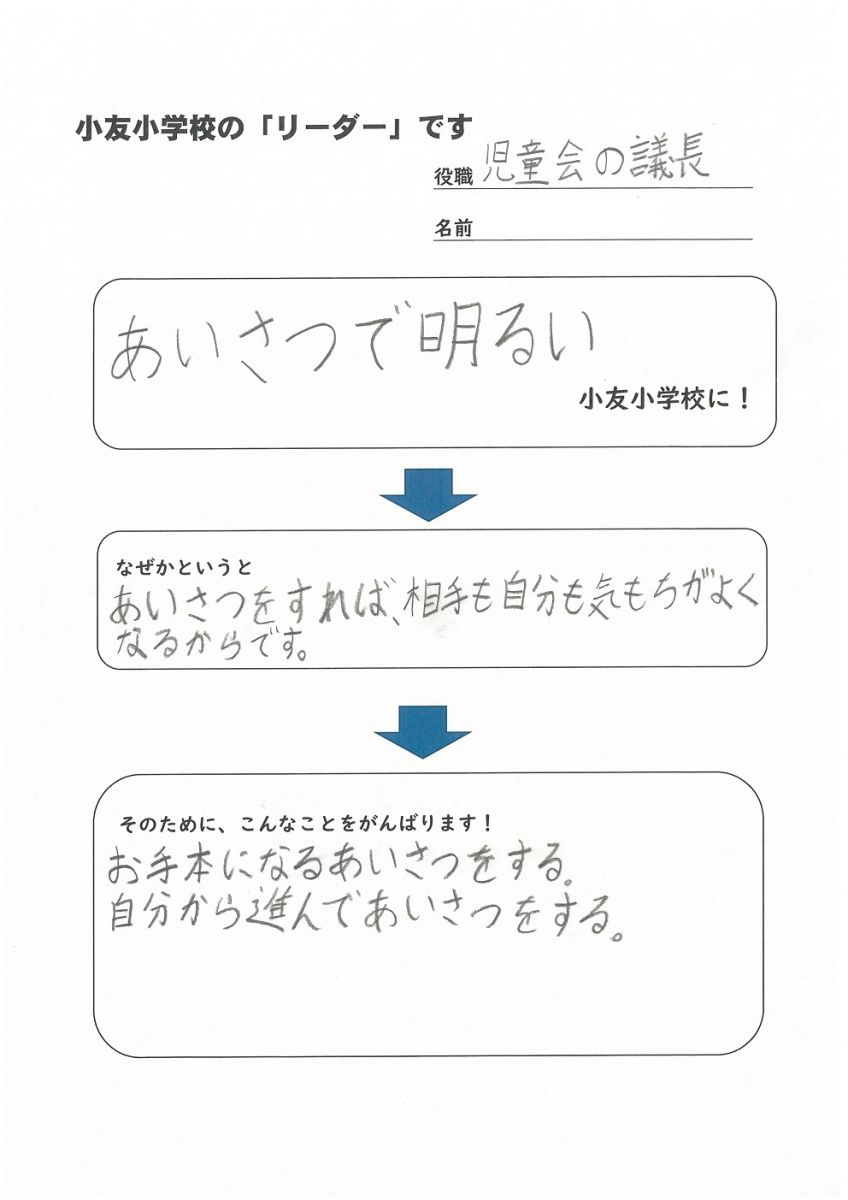 小友小学校の「リーダー」です
役職 児童会の議長
名前
あいさつで明るい
小友小学校に！
なぜかというと
あいさつをすれば、相手も自分も気もちがよく
なるからです。
そのために、こんなことをがんばります！
お手本になるあいさつをする。
自分から進んであいさつをする。